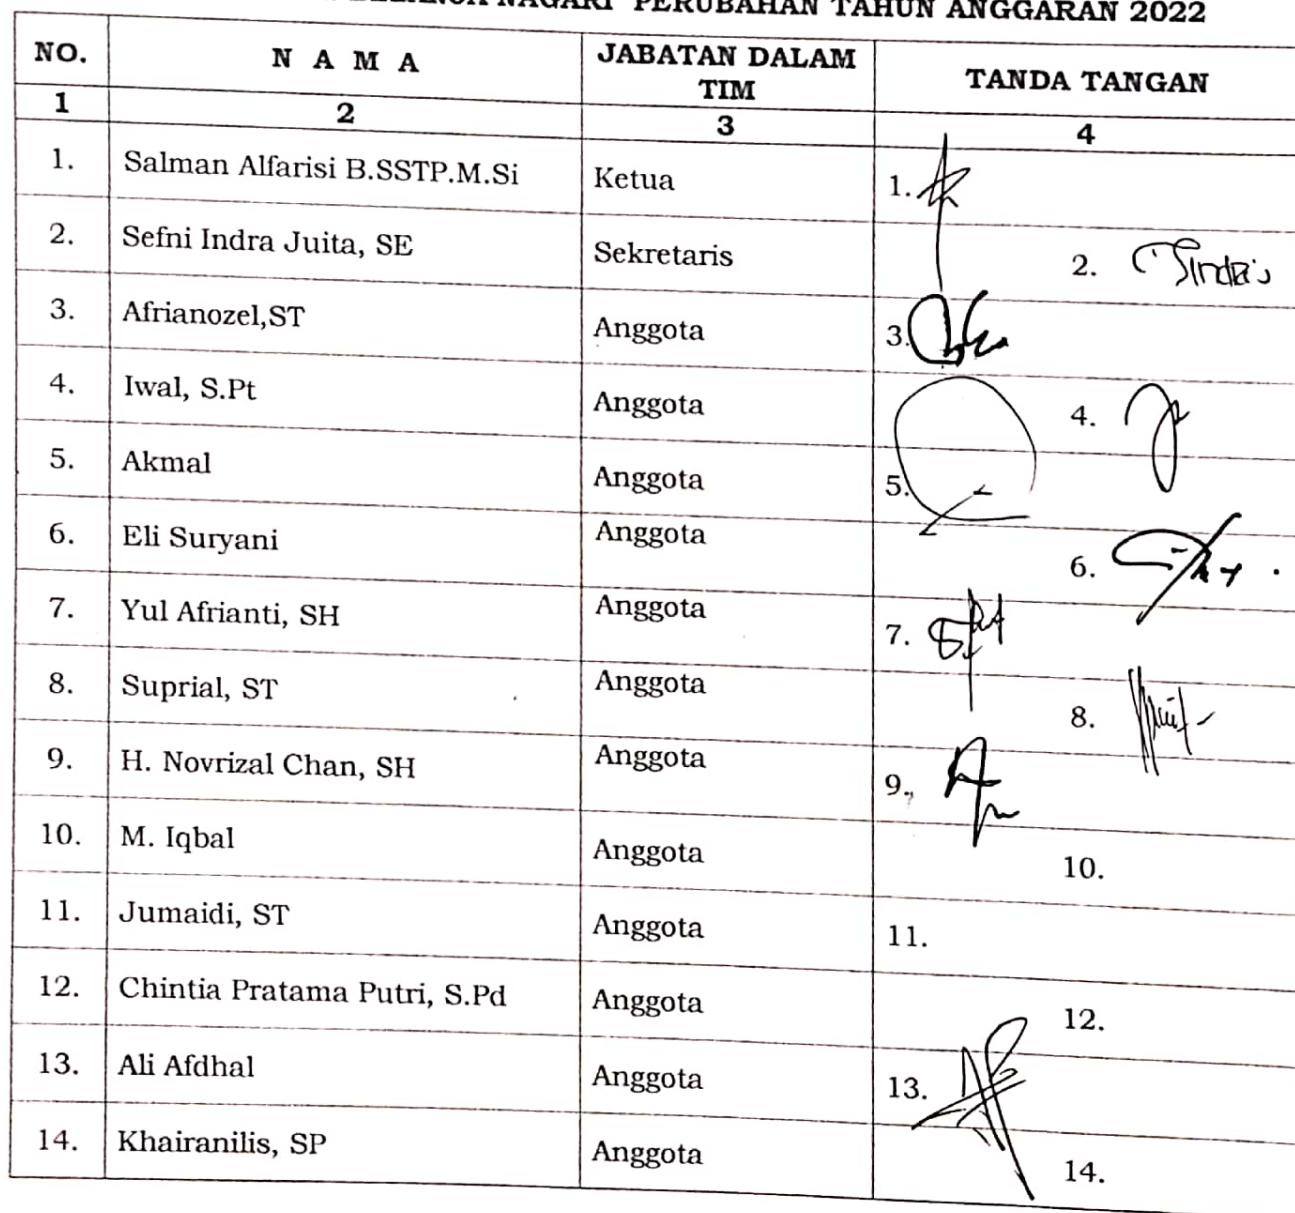 BELANJA NAGARI PERUBAHAN TAHUN ANGGARAN 2022
NO. N A M A JABATAN DALAM TIM TANDA TANGAN
1 2 3 4
1. Salman Alfarisi B.SSTP.M.Si Ketua 1.
2. Sefni Indra Juita, SE Sekretaris 2.
3. Afrianozel,ST Anggota 3.
4. Iwal, S.Pt Anggota 4.
5. Akmal Anggota 5.
6. Eli Suryani Anggota 6.
7. Yul Afrianti, SH Anggota 7.
8. Suprial, ST Anggota 8.
9. H. Novrizal Chan, SH Anggota 9.
10. M. Iqbal Anggota 10.
11. Jumaidi, ST Anggota 11.
12. Chintia Pratama Putri, S.Pd Anggota 12.
13. Ali Afdhal Anggota 13.
14. Khairanilis, SP Anggota 14.